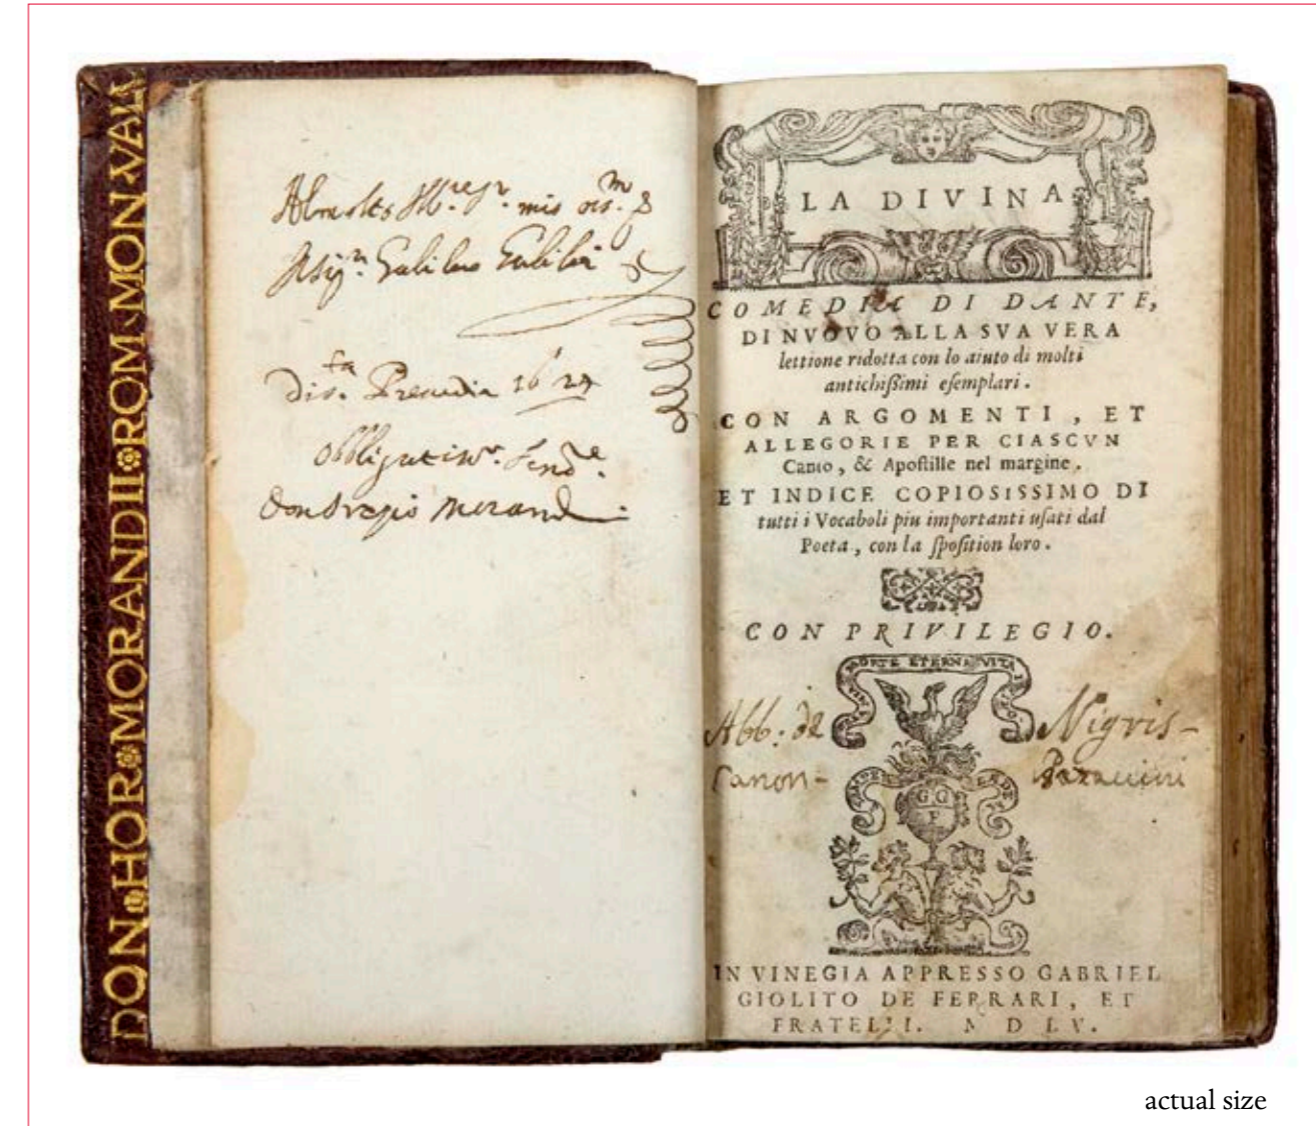 DON HOR MORANDII ROM MON VALL
Al molto Ill.re Sr. mio oss.mo
Il Sig.r Galileo Galilei
1624
obbligatiss.
Don Orazio Morandi
LA DIVINA
COMEDIA DI DANTE,
DI NVOVO ALLA SVA VERA
lettione ridotta con lo aiuto di molti
antichißimi eſemplari.
CON ARGOMENTI, ET
ALLEGORIE PER CIASCVN
Canto, & Apoſtille nel margine.
ET INDICE COPIOSISSIMO DI
tutti i Vocaboli piu importanti uſati dal
Poeta, con la ſpoſition loro.
CON PRIVILEGIO.
MORTE ETERNA VITA
Abb. de Nigris-
Canon-
GG
F
IN VINEGIA APPRESSO GABRIEL
GIOLITO DE FERRARI, ET
FRATELLI. M D LV.
actual size